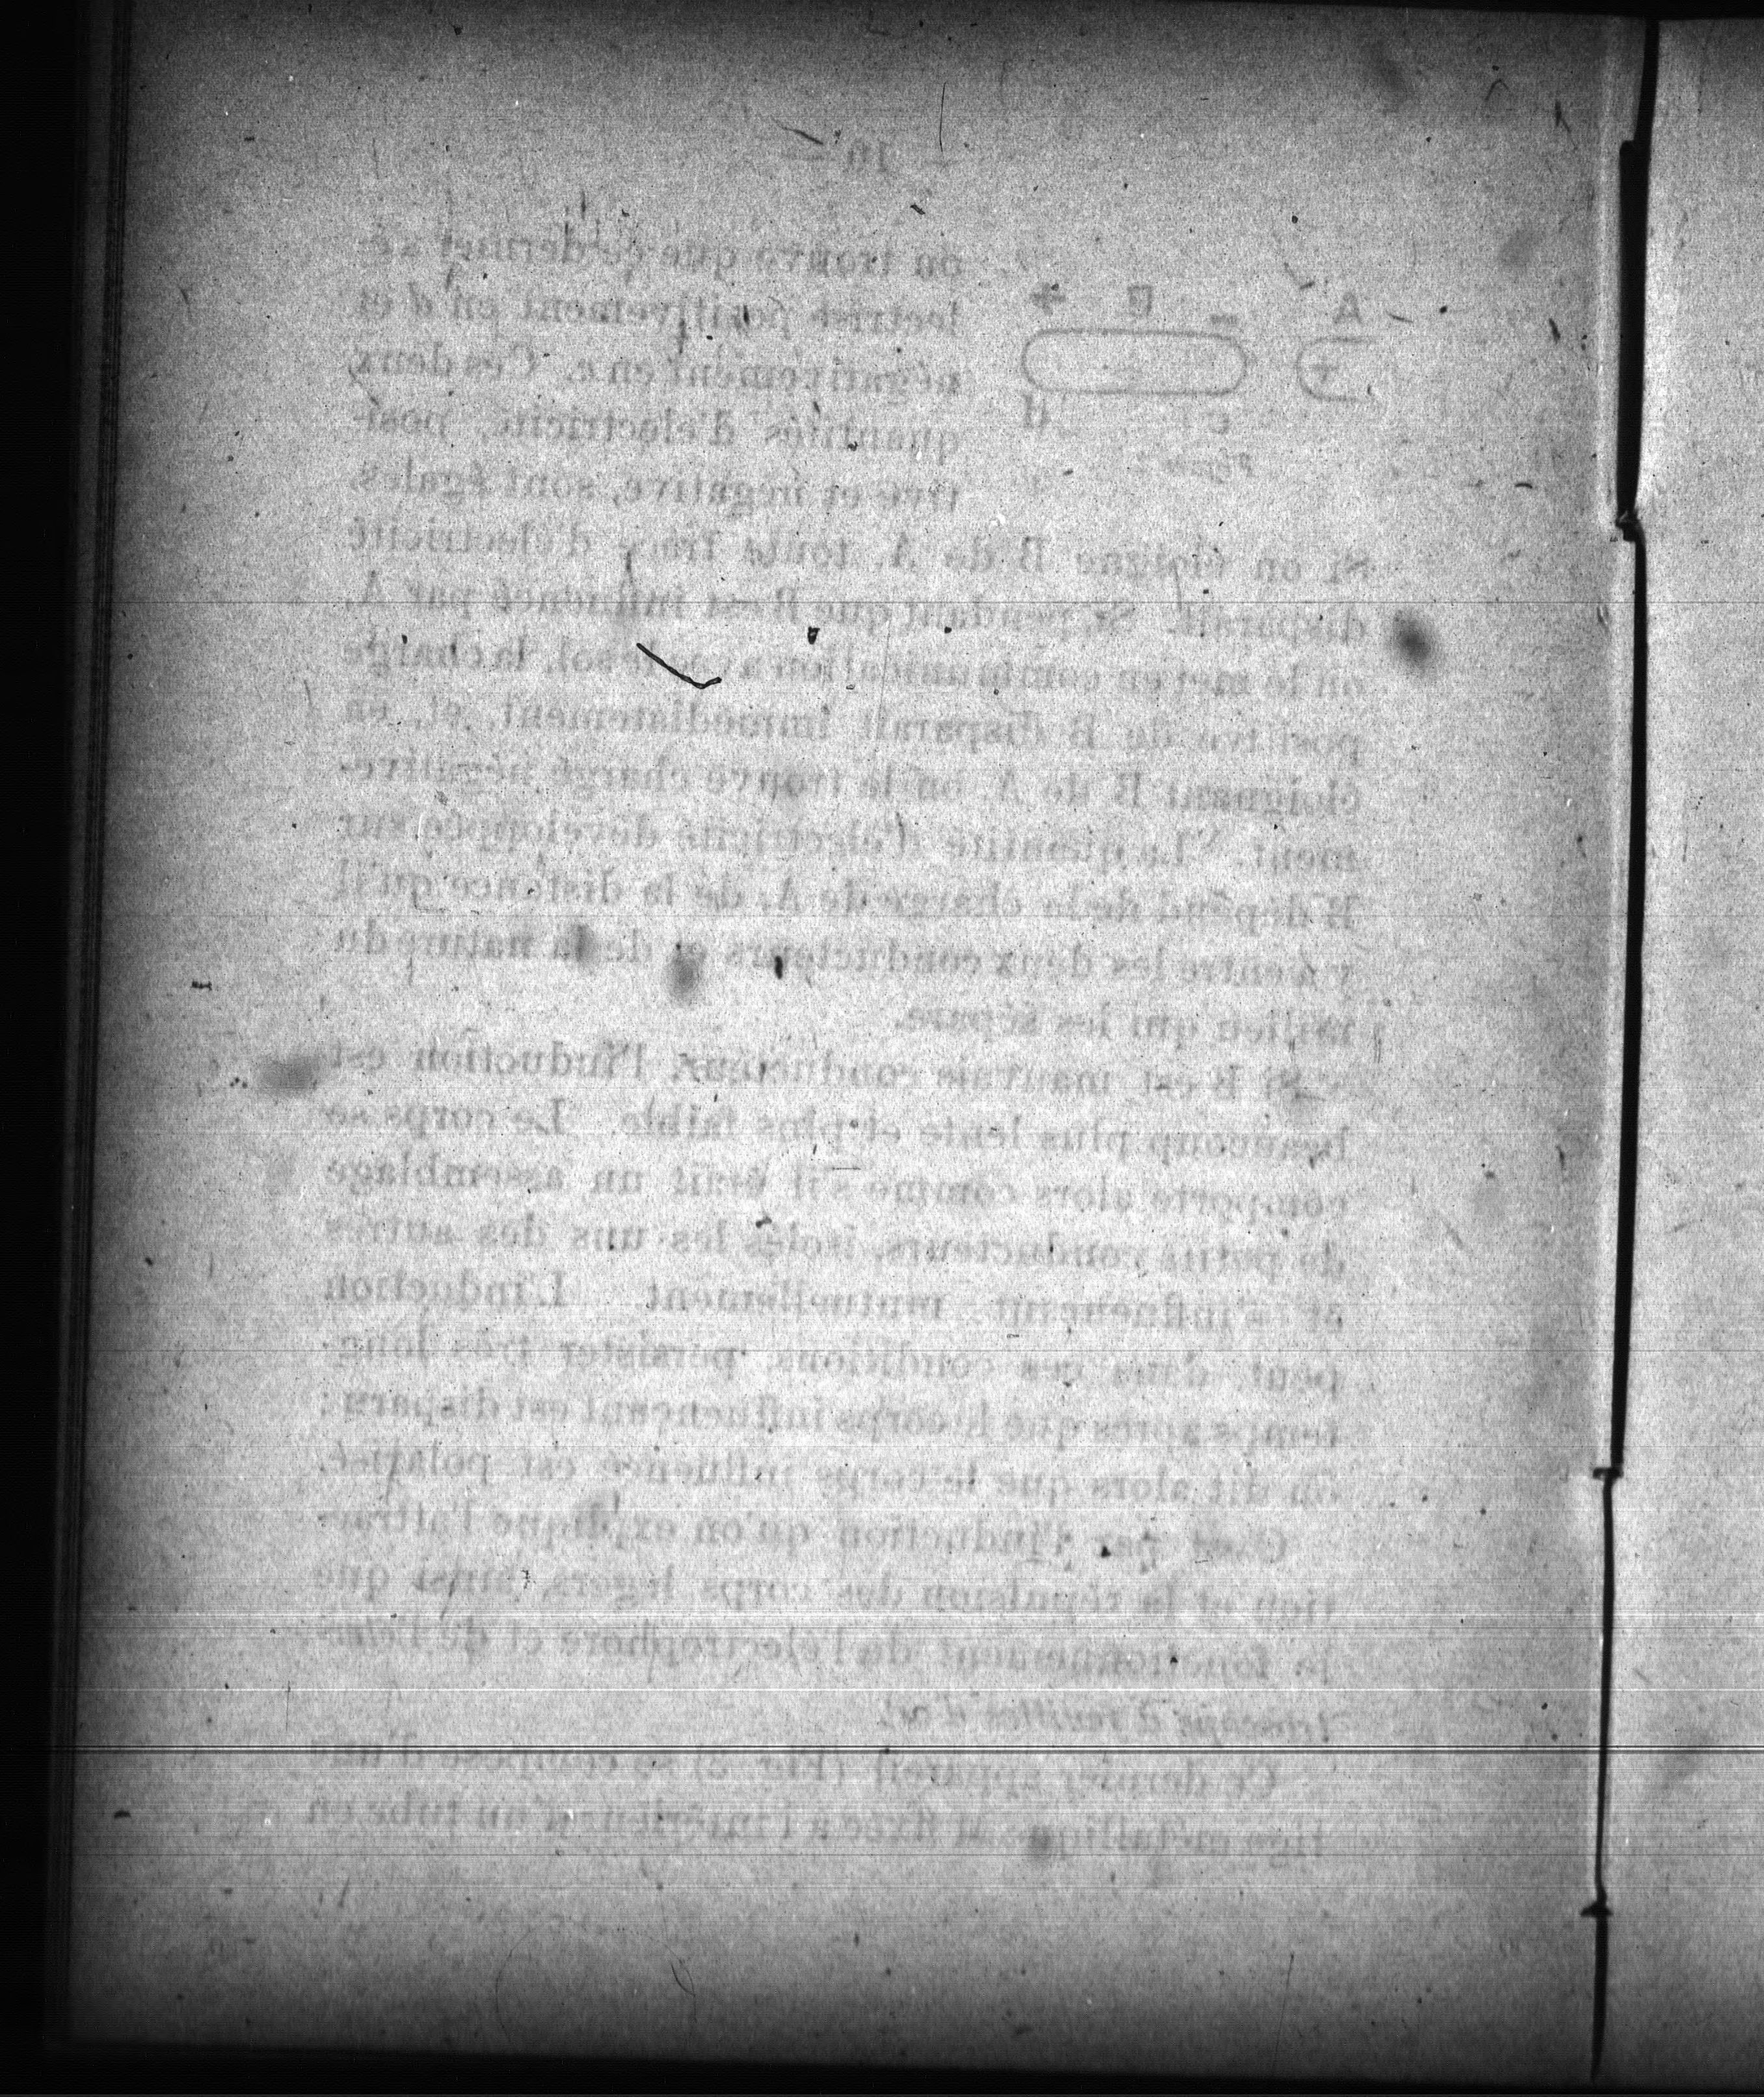 — 10 —
A B
+ - +
c d
on trouve que ce dernier s'é-
lectrise positivement en d et
négativement en c. Ces deux
quantités d'électricité, posi-
tive et négative, sont égales.
Si on éloigne B de A, toute trace d'électricité
disparaît. Si pendant que B est influencé par A,
on le met en communication avec le sol, la charge
positive de B disparaît immédiatement, et, en
éloignant B de A, on le trouve chargé négative-
ment. La quantité d'électricité développée sur
B dépend de la charge de A, de la distance qu'il
y a entre les deux conducteurs et de la nature du
milieu qui les sépare.
Si B est mauvais conducteur, l'induction est
beaucoup plus lente et plus faible. Le corps se
comporte alors comme s'il était un assemblage
de petits conducteurs, isolés les uns des autres
et s'influençant mutuellement. L'induction
peut, dans ces conditions, persister très long-
temps après que le corps influençant est disparu ;
on dit alors que le corps influencé est polarisé.
C'est par l'induction qu'on explique l'attrac-
tion et la répulsion des corps légers, ainsi que
le fonctionnement de l'électrophore et de l'élec-
troscope à feuilles d'or.
Ce dernier appareil (Fig. 3) se compose d'une
tige métallique fixée à l'intérieur d'un tube en